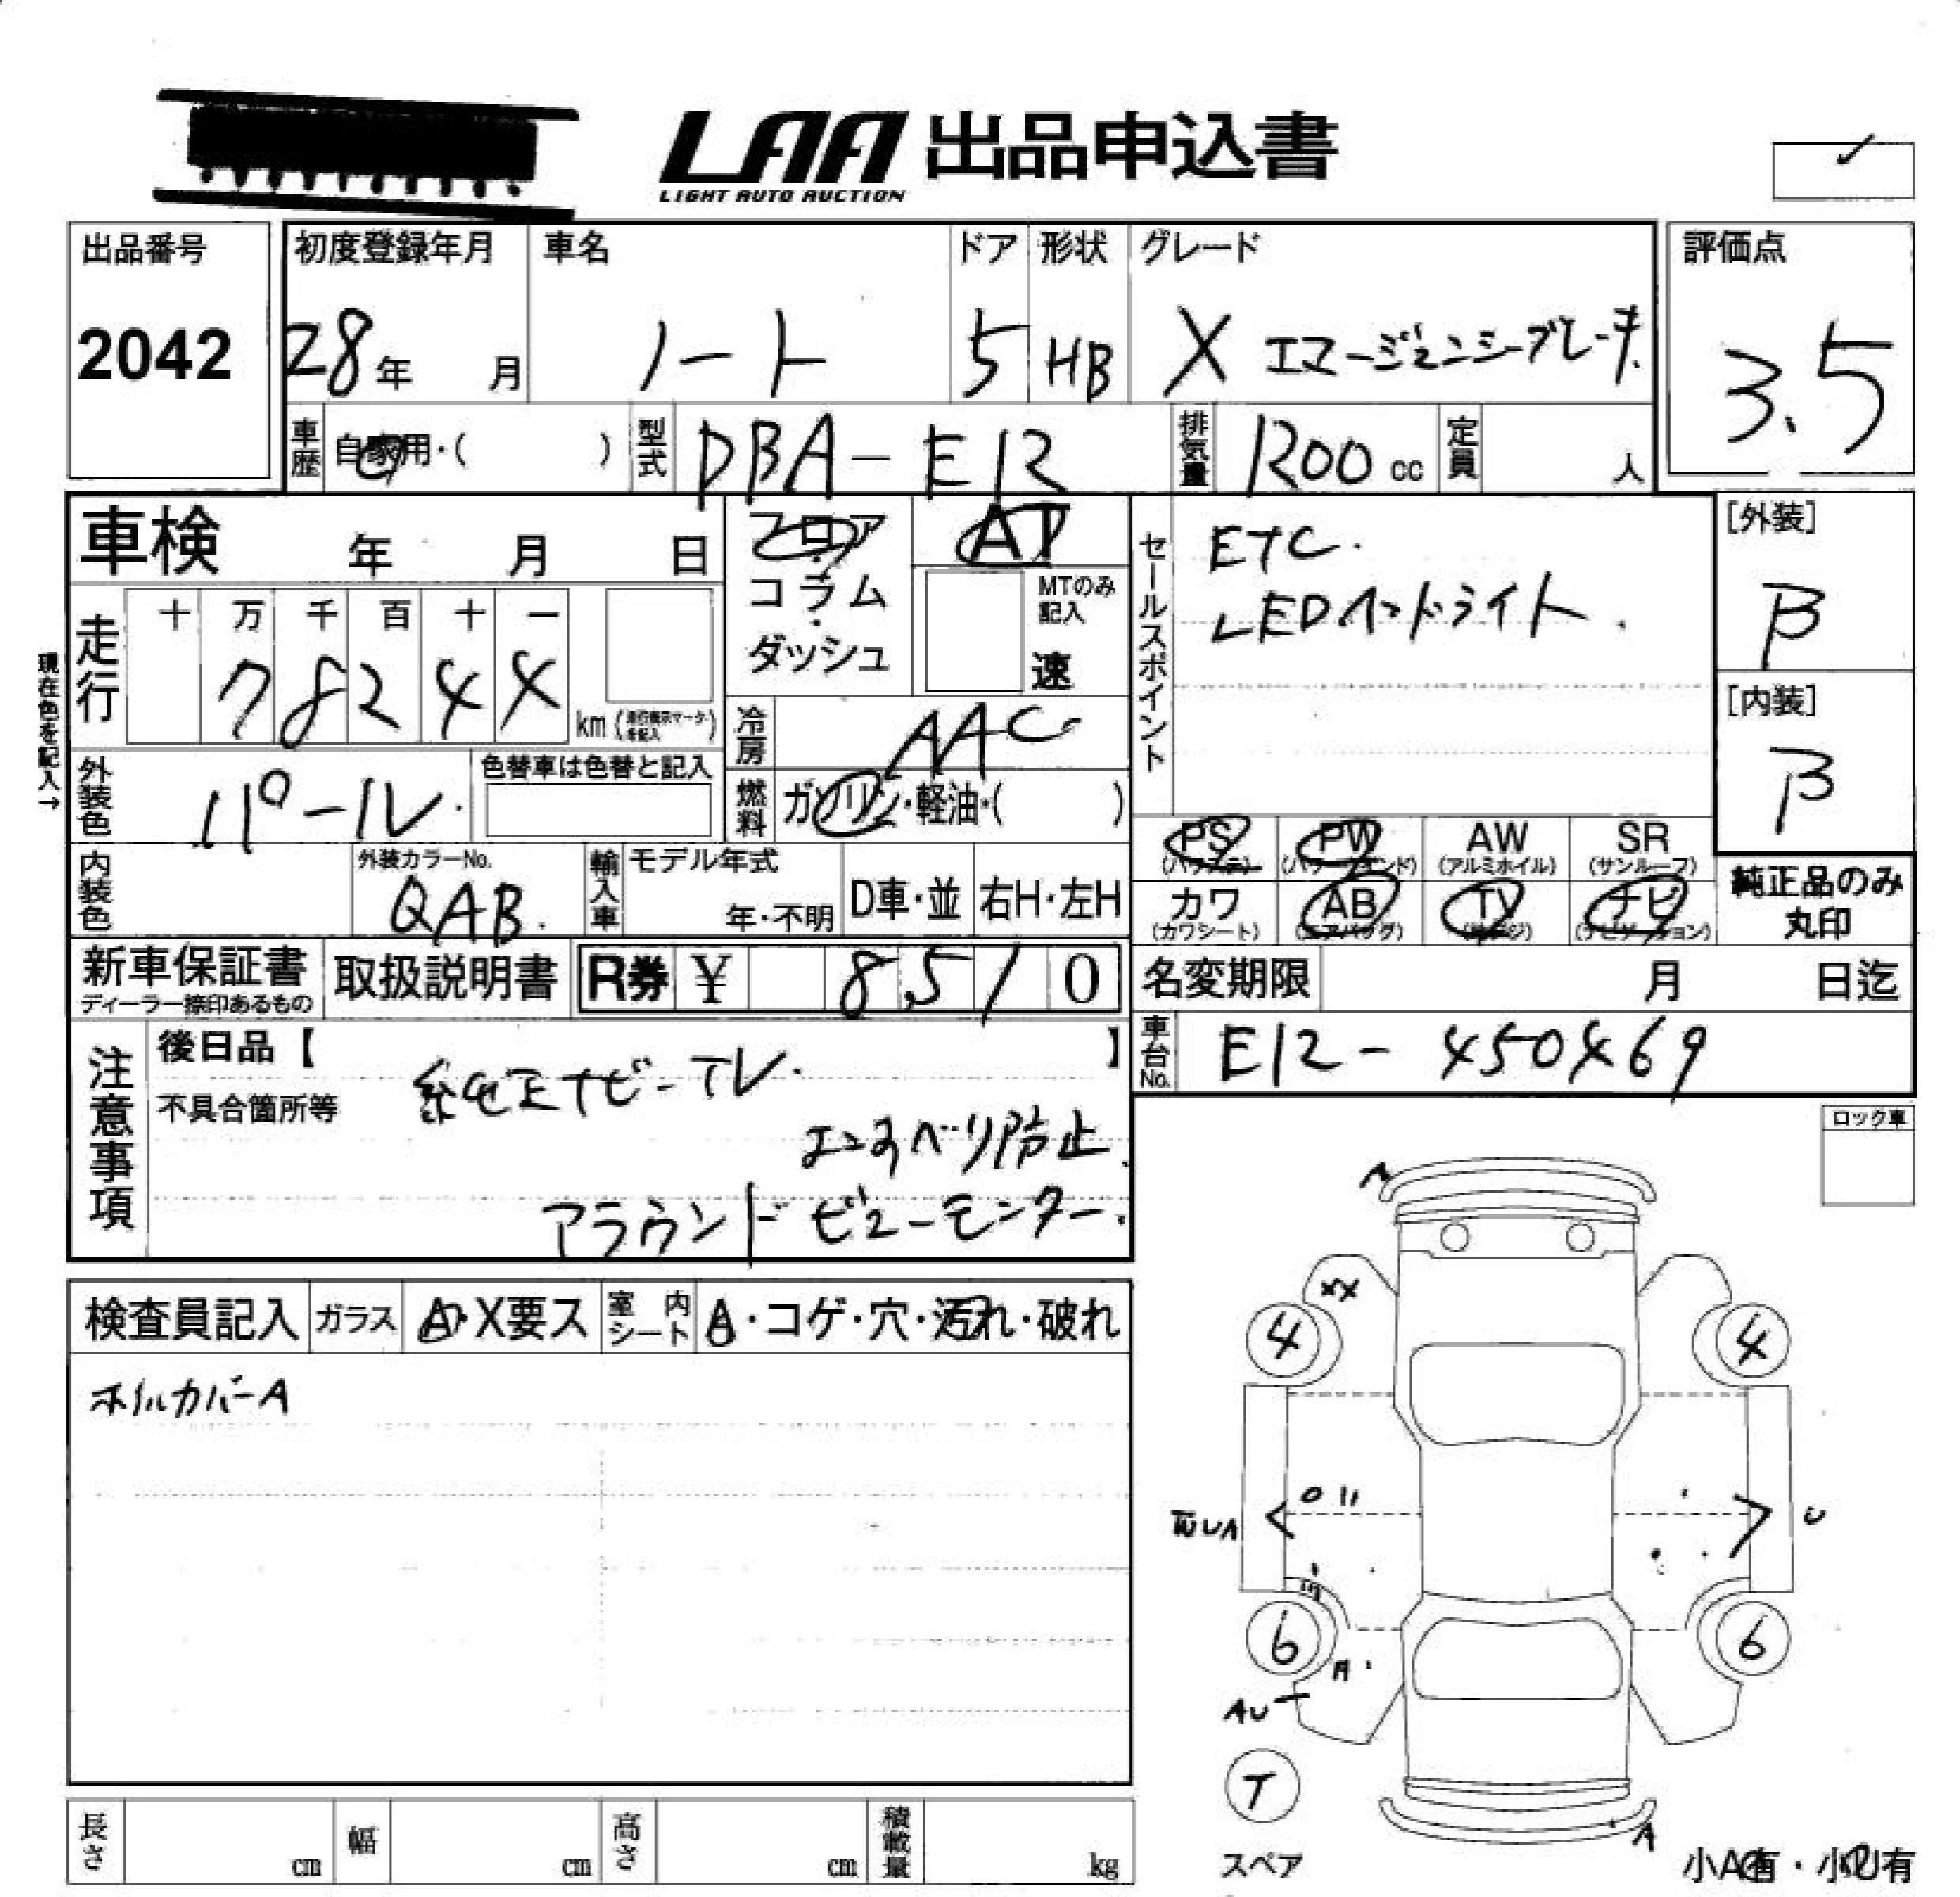 LAA 出品申込書
LIGHT AUTO AUCTION
出品番号
2042
初度登録年月
28年 月
車名
ノート
ドア
5
形状
HB
グレード
X エマージェンシーブレーキ
評価点
3.5
車歴 自家用・( )
型式 DBA-E12
排気量 1200cc
定員 人
車検 年 月 日
フロア・コラム・ダッシュ
AT
MTのみ記入
速
セールスポイント
ETC.
LEDヘッドライト.
[外装]
B
[内装]
B
現在色を記入→
走行
十 万 千 百 十 一
7 8 2 4 4
km (走行表示マークを記入)
冷房 AAC
外装色 パール.
色替車は色替と記入
燃料 ガソリン・軽油・( )
PS (パワステ)
PW (パワーウインド)
AW (アルミホイル)
SR (サンルーフ)
カワ (カワシート)
AB (エアバッグ)
TV (テレビ)
ナビ (ナビゲーション)
純正品のみ丸印
内装色
外装カラーNo.
QAB.
輸入車
モデル年式
年・不明
D車・並
右H・左H
新車保証書
ディーラー捺印あるもの
取扱説明書
R券 ¥ 8,510
名変期限 月 日迄
車台No. E12-450469
注意事項
後日品【 】
不具合箇所等
純正ナビ-TV.
エンすべり防止.
アラウンドビューモニター.
ロック車
検査員記入
ガラス A・X要ス
室内シート A・コゲ・穴・汚れ・破れ
ホイルカバーA
A
XX
4 4
UA
U
6 6
A
AU
T
スペア
A
小A有・小U有
長さ cm
幅 cm
高さ cm
積載量 kg